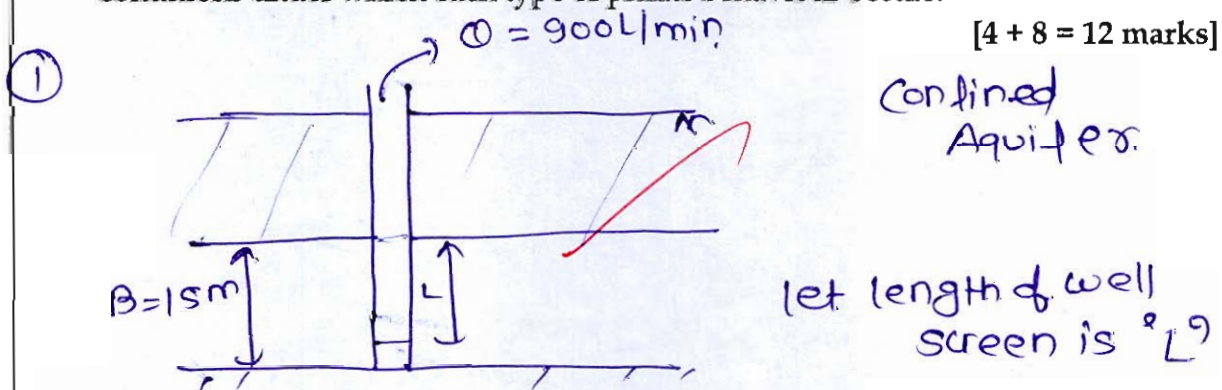 [4 + 8 = 12 marks]
① Q = 900L/min
Confined
Aquifer.
B=15m
L
let length of well
screen is "L"